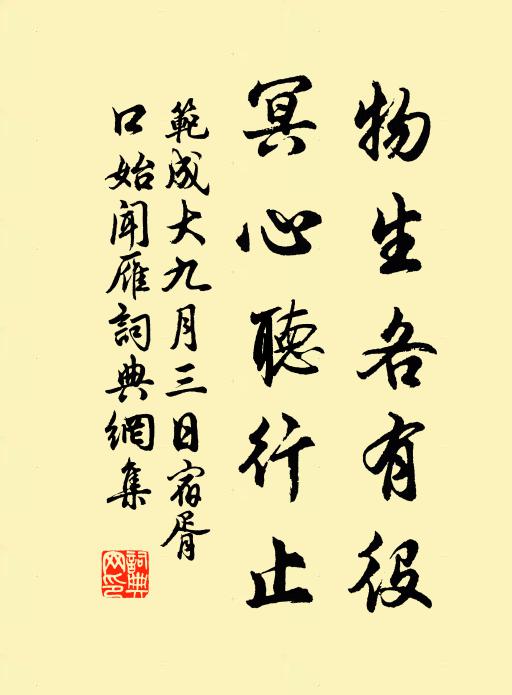 物生各有役
冥心聽行止
範成大九月三日宿胥
口始闻雁詞典網集
詞典
网印